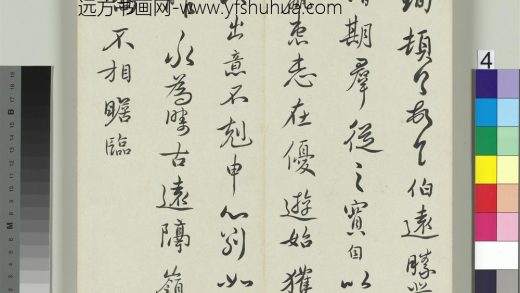 远方书画网-www.yfshuhua.com
珣頓首頓首伯遠勝業
情期羣從之寶自以
羸患志在優遊始獲
出意不剋申分別如
永為疇古遠隔嶺
不相瞻臨
4
B
M